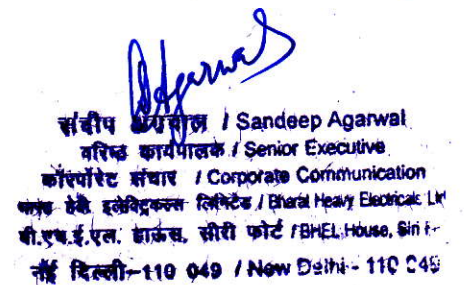 Agarwal
संदीप अग्रवाल / Sandeep Agarwal
वरिष्ठ कार्यपालक / Senior Executive
कॉरपोरेट संचार / Corporate Communication
भारत हेवी इलेक्ट्रिकल्स लिमिटेड / Bharat Heavy Electricals
बी.एच.ई.एल. हाऊस, सीरी फोर्ट / BHEL House, Siri
नई दिल्ली-110 049 / New Delhi - 110 049